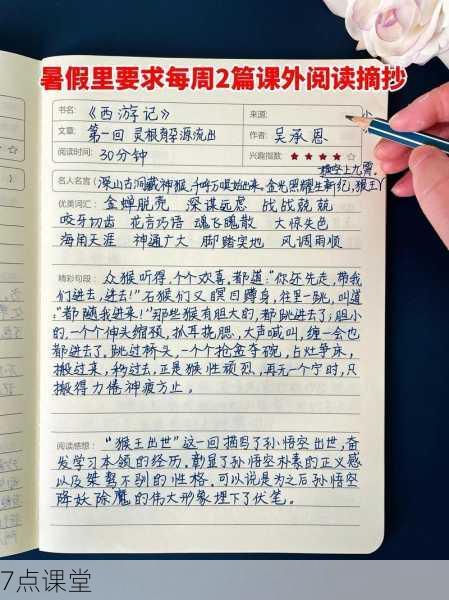 暑假里要求每周2篇课外阅读摘抄
书名: 《西游记》 来源:
文章: 第一回 灵根育孕源流出 作者: 吴承恩
阅读时间: 30分钟 兴趣指数: ★★★★☆
名人名言: (深山古洞藏神猴,千呼万唤始出来。金光照耀生新纪,猴王
优美词汇: 金蝉脱壳 深谋远虑 战战兢兢
咬牙切齿 花言巧语 魂飞魄散 大惊失色
海角天涯 神通广大 脚踏实地 风调雨顺
精彩句段: 众猴听得,个个欢喜,都道:“你还先走,带我
们进去,进去!”石猴们又瞑目蹲身,往里一跳,叫道
:“都随我进来!”那些猴有胆大的,都跳进去了;胆小
的,一个个伸头缩颈,抓耳挠腮,大声喊叫,缠一会也
都进去了。跳过桥头,一个个抢盆夺碗,占灶争床,
搬过来,移过去,正是猴性顽烈,再无一个宁时,只
搬得力倦神疲方止。
阅读感想: “猴王出世”这一回描写了孙悟空出世,奋
发学习本领的经历,彰显了孙悟空朴素的正义感
以及桀骜不驯的性格。可以说是为之后孙悟空
降妖除魔的伟大形象埋下了伏笔。
7点课堂